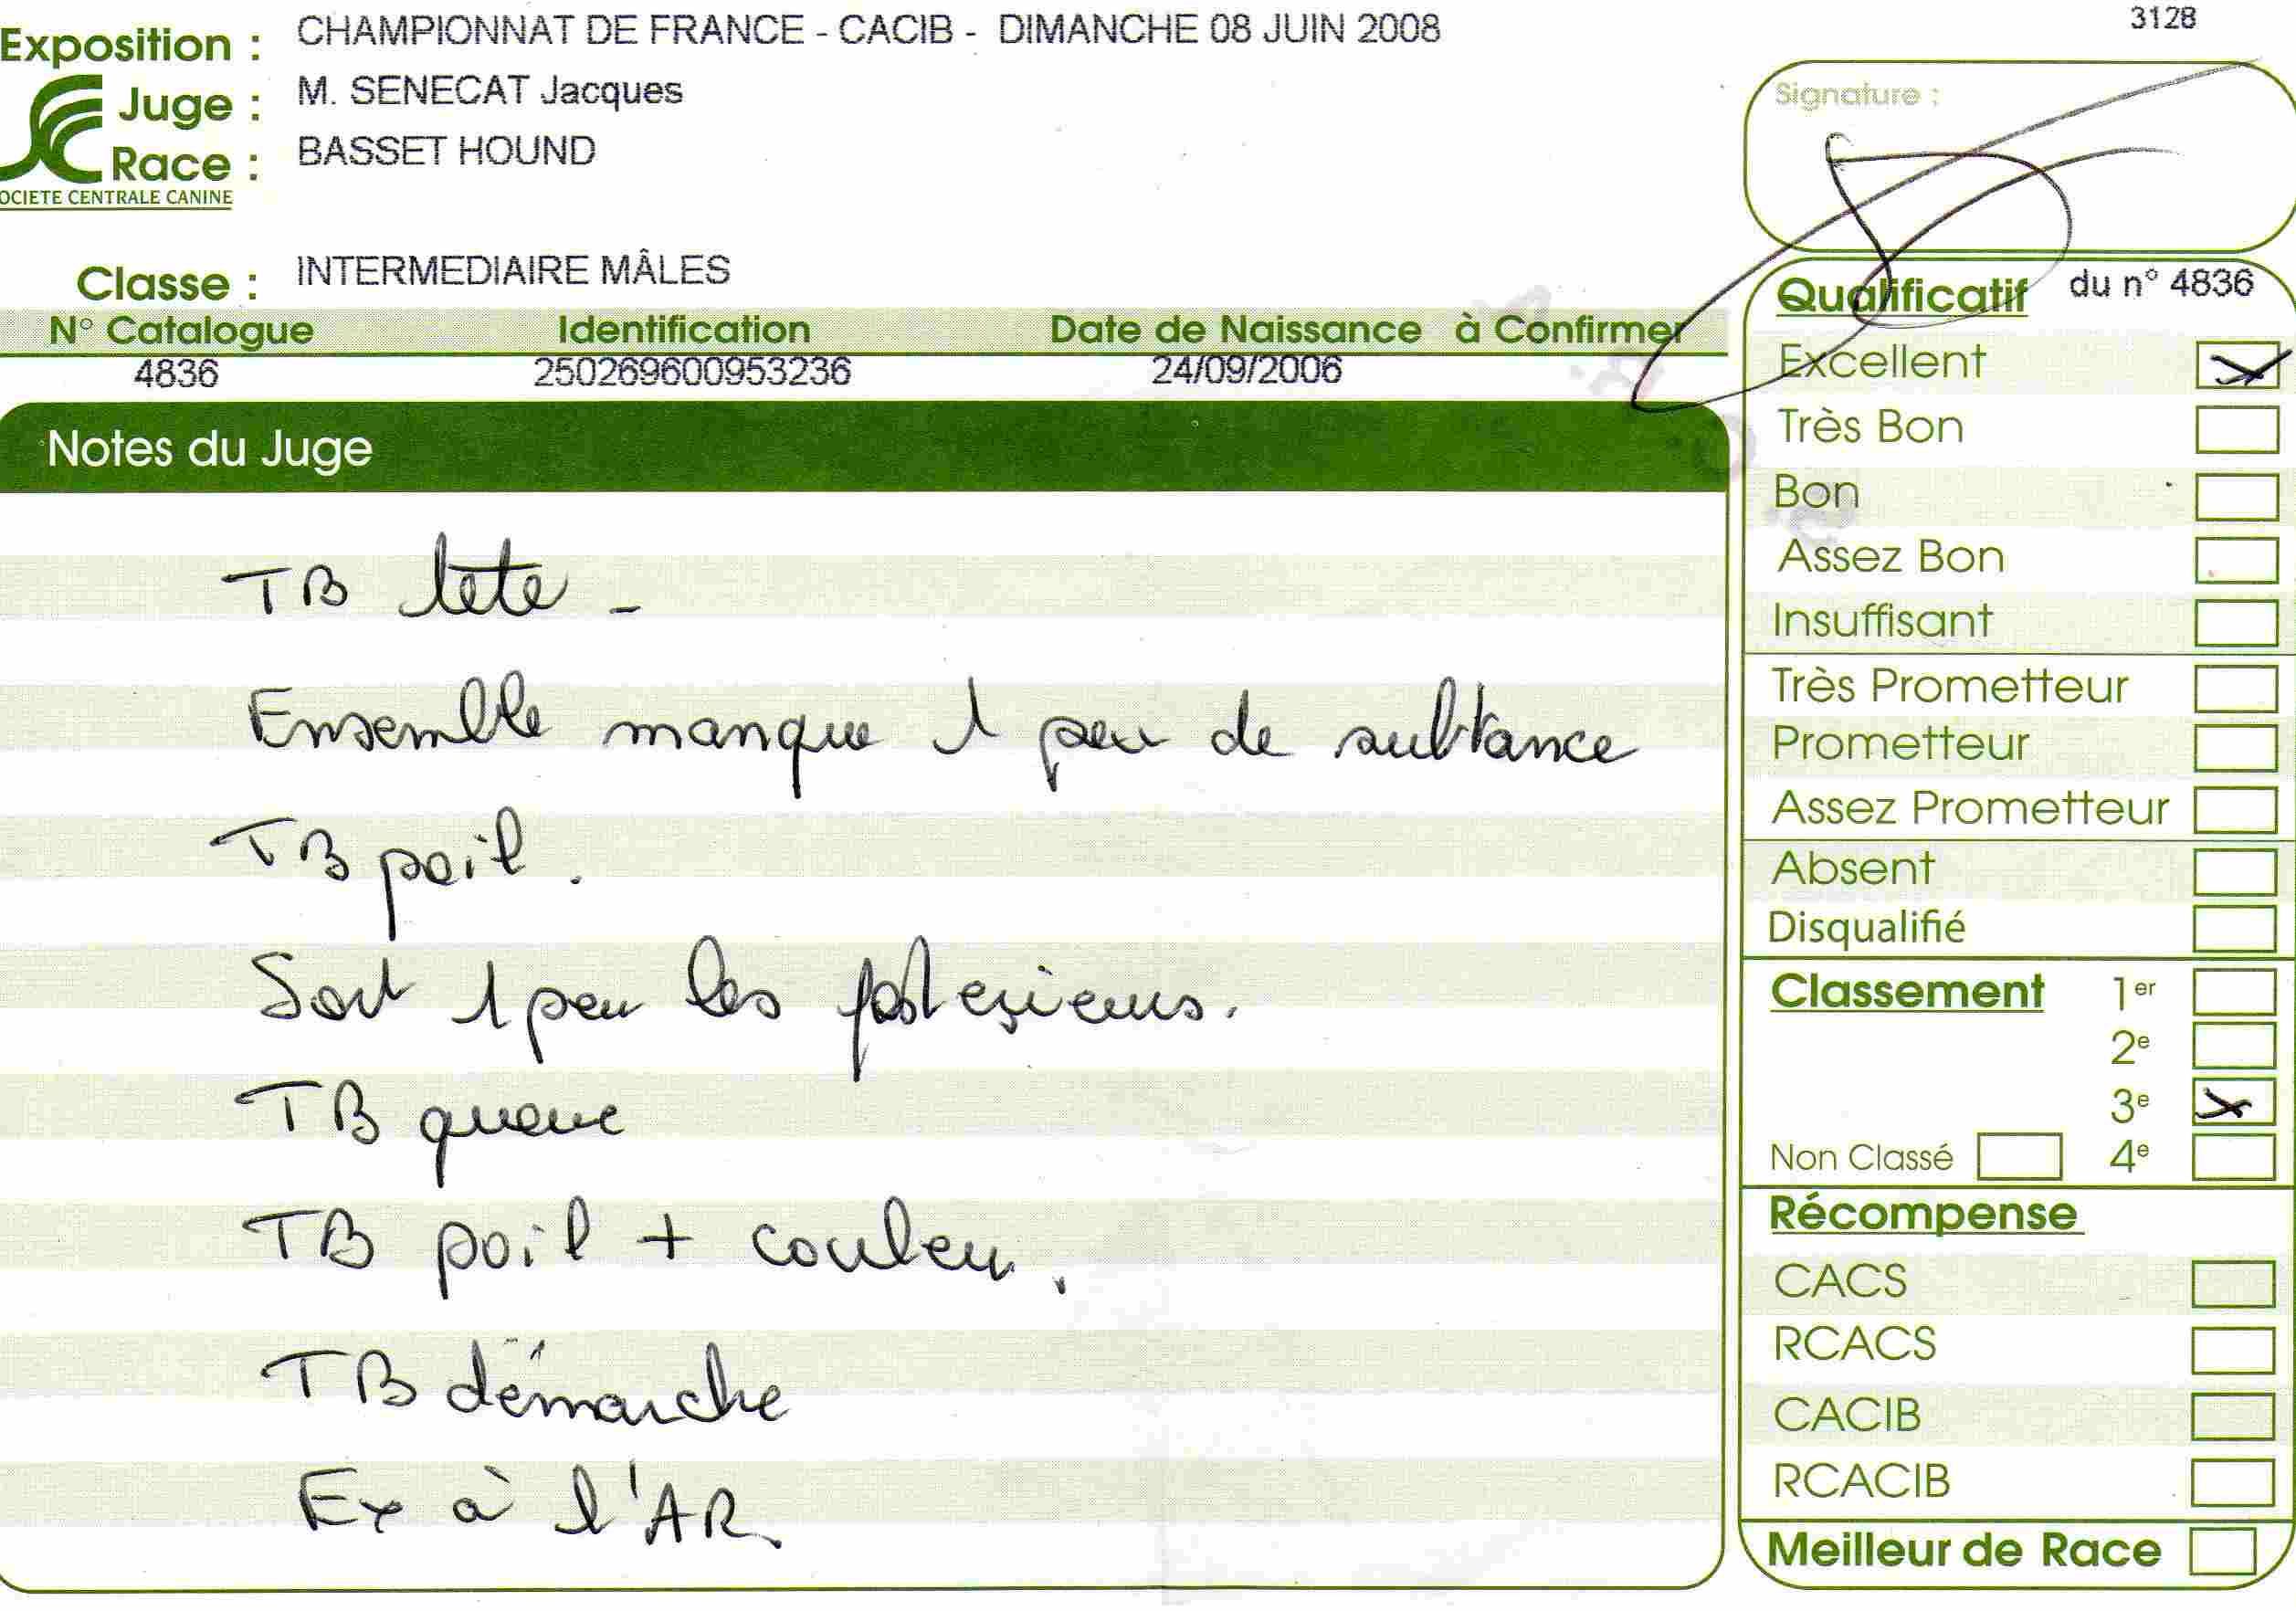 3128
Exposition : CHAMPIONNAT DE FRANCE - CACIB - DIMANCHE 08 JUIN 2008
Juge : M. SENECAT Jacques
Race : BASSET HOUND
OCIETE CENTRALE CANINE
Signature :
Classe : INTERMEDIAIRE MÂLES
N° Catalogue Identification Date de Naissance à Confirmer
4836 250269600953236 24/09/2006
Notes du Juge
TB tete -
Ensemble manque 1 peu de subtance
TB poil.
Sort 1 peu les posterieurs.
TB queue
TB poil + couleur.
TB démarche
Ex à l'AR
Qualificatif du n° 4836
Excellent
Très Bon
Bon
Assez Bon
Insuffisant
Très Prometteur
Prometteur
Assez Prometteur
Absent
Disqualifié
Classement 1er
2e
3e
Non Classé 4e
Récompense
CACS
RCACS
CACIB
RCACIB
Meilleur de Race